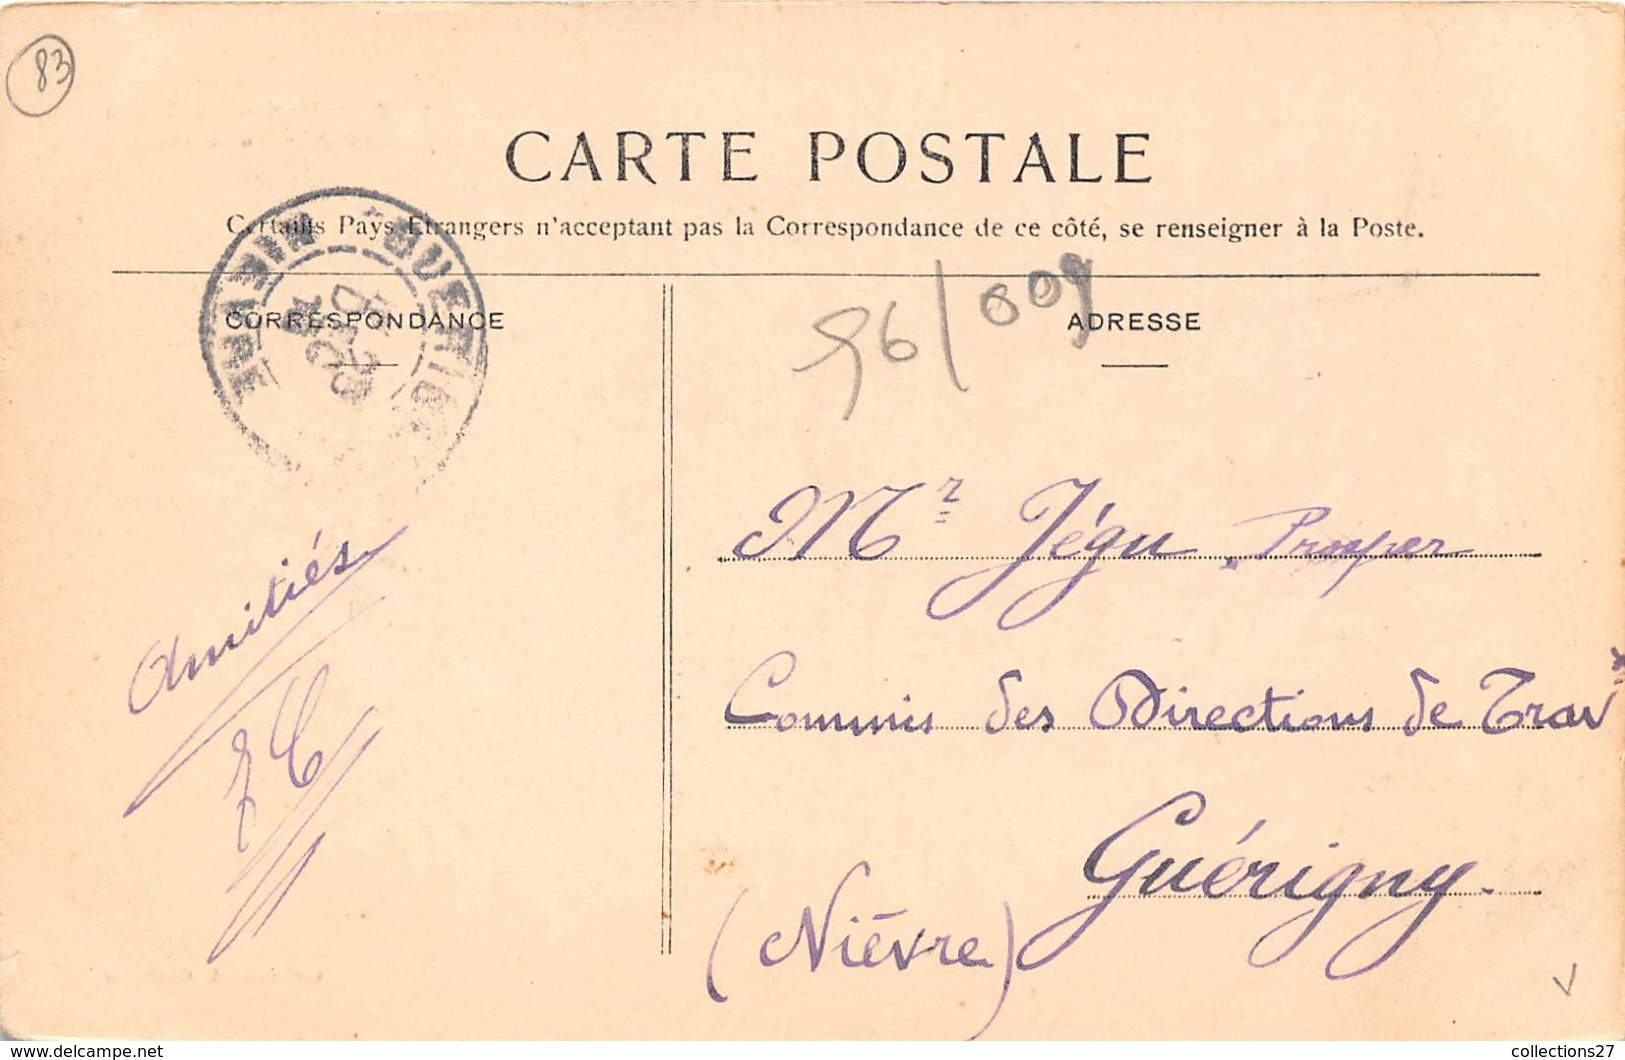 83
CARTE POSTALE
Certains Pays Etrangers n'acceptant pas la Correspondance de ce côté, se renseigner à la Poste.
CORRESPONDANCE
ADRESSE
96/009
NIEVRE
Amitiés
Mr Jégu. Prosper
Commis des Directions de Travx
Guérigny.
(Nièvre)
delcampe.net
collections27